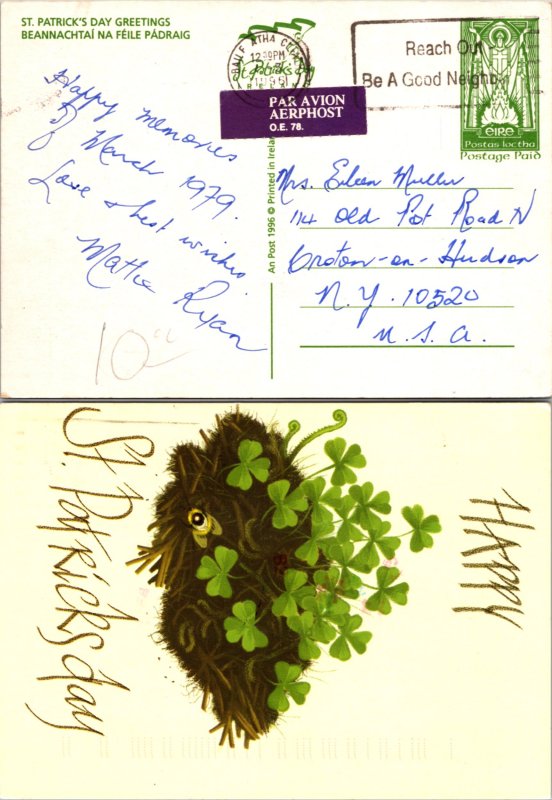 ST. PATRICK'S DAY GREETINGS
BEANNACHTAÍ NA FÉILE PÁDRAIG
St. Patrick's Day
BAILE ÁTHA CLIATH
12:30PM
1996
Reach Out
Be A Good Neighbo
ÉIRE
Postas íoctha
Postage Paid
PAR AVION
AERPHOST
O.E. 78.
Happy memories
of March 1979.
Love & best wishes
Mattie Ryan
10
An Post 1996 © Printed in Irelan
Mrs. Eileen Muller
114 Old Post Road N
Croton-on-Hudson
N.Y. 10520
U.S.A.
HAPPY
St. Patricks day